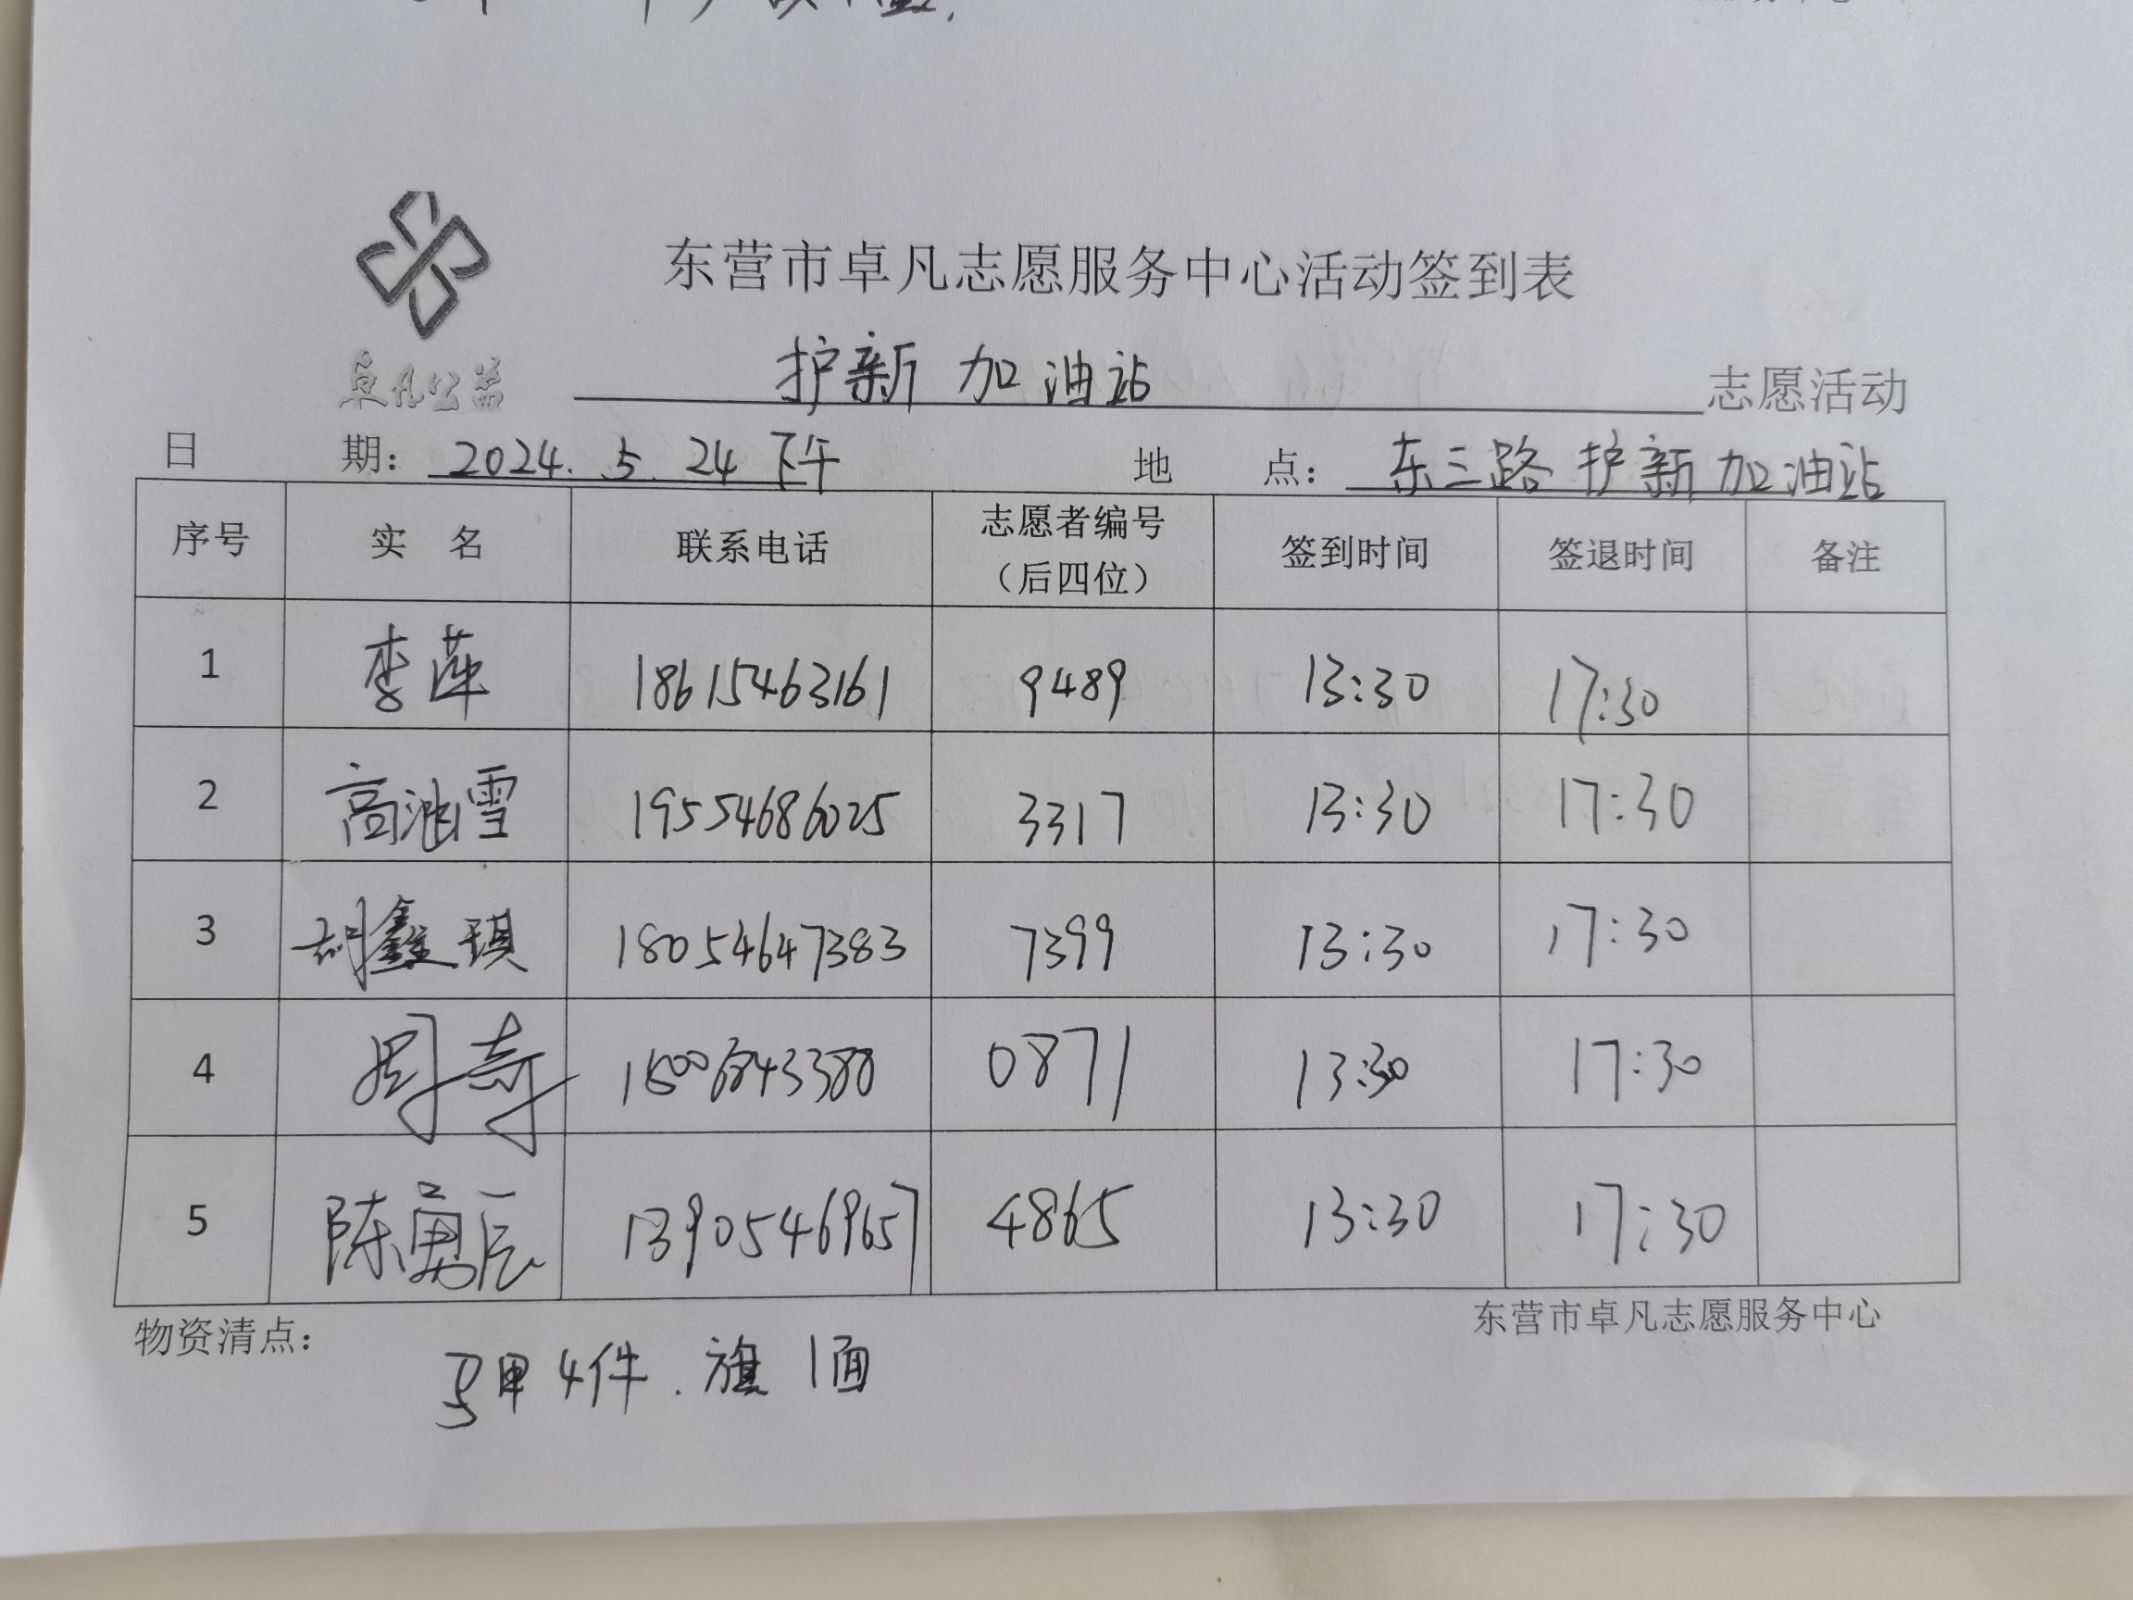 东营市卓凡志愿服务中心活动签到表
卓凡公益
护新加油站 志愿活动
日 期：2024.5.24下午 地 点：东三路护新加油站
序号 实 名 联系电话 志愿者编号（后四位） 签到时间 签退时间 备注
1 李萍 18615463161 9489 13:30 17:30
2 高油雪 19554686025 3317 13:30 17:30
3 胡鑫琪 18054647383 7399 13:30 17:30
4 周奇 0871 13:30 17:30
5 13905469657 4865 13:30 17:30
物资清点： 东营市卓凡志愿服务中心
马甲4件.旗1面